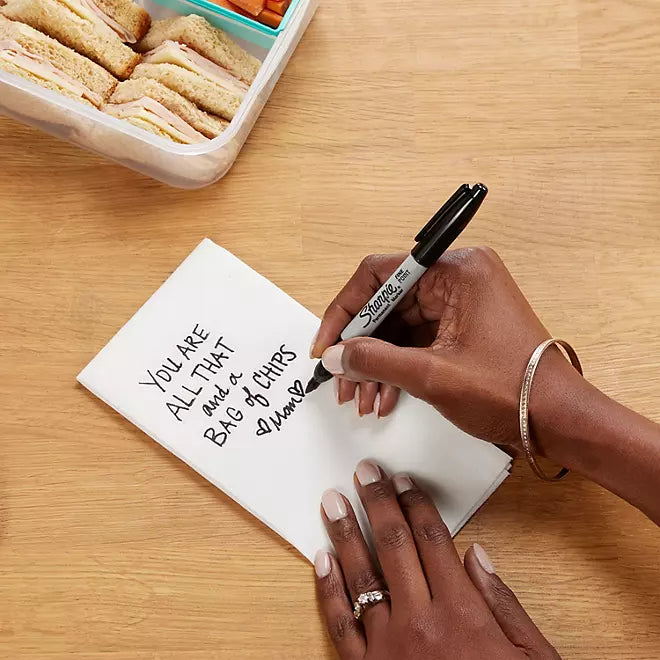 YOU ARE
ALL THAT
and a
BAG of CHIPS
♡Mom♡
Sharpie
FINE POINT
Permanent Marker